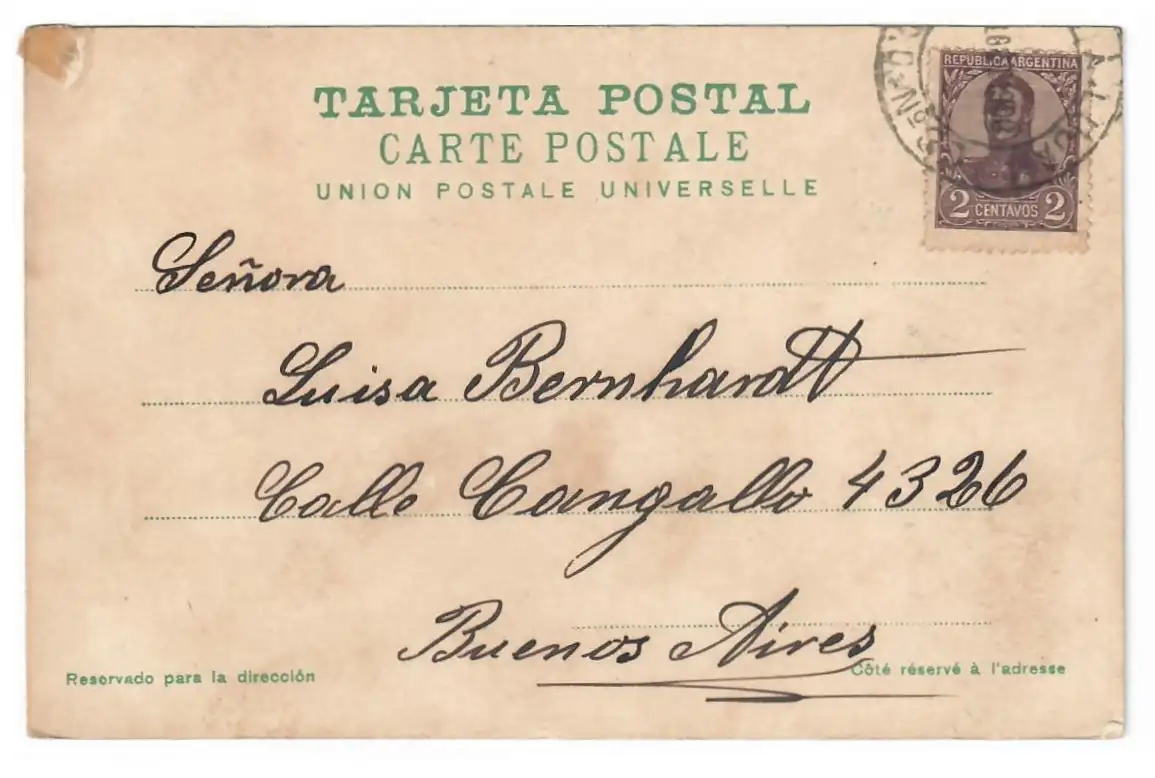 TARJETA POSTAL
CARTE POSTALE
UNION POSTALE UNIVERSELLE
REPUBLICA ARGENTINA
2 CENTAVOS 2
Señora
Luisa Bernhardt
Calle Cangallo 4326
Buenos Aires
Reservado para la dirección
Côté réservé à l'adresse